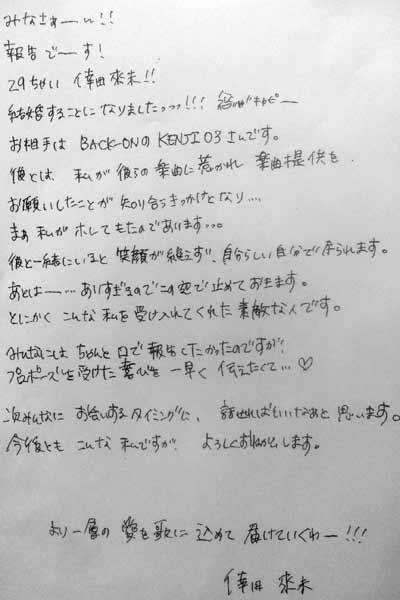 みなさぁーん!!
報告でーす!
29ちゃい 倖田來未!!
結婚することになりましたっっっ!!!
お相手は BACK-ONの KENJI03さんです。
彼とは 私が彼らの楽曲に惹かれ 楽曲提供を
お願いしたことが 知り合うきっかけとなり....
まぁ 私がホレてもたのであいますっっ。
彼と一緒にいると 笑顔が絶えず、自分らしい自分で居られます。
あとはー....ありすぎるのでこの辺で止めておきます。
とにかく こんな私を受け入れてくれた 素敵な人です。
みんなには ちゃんと口で報告したかったのですが!
プロポーズを受けた喜びを一早く 伝えたくて...♡
次みんなに お会いするタイミングに、話せればいいなあと 思います。
今後とも こんな私ですが、よろしくおねがいします。
より一層の 愛を歌に 込めて 届けていくわー!!!
倖田 來未